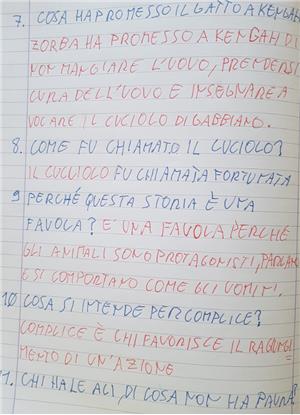 7. COSA HA PROMESSO IL GATTO A KENGAH
ZORBA HA PROMESSO A KENGAH DI
NON MANGIARE L'UOVO, PRENDERSI
CURA DELL'UOVO E INSEGNARE A
VOLARE IL CUCIOLO DI GABBIANO.
8. COME FU CHIAMATO IL CUCIOLO?
IL CUCLIOLO FU CHIAMATA FORTUNATA
9 PERCHÉ QUESTA STORIA È UNA
FAVOLA? E' UNA FAVOLA PERCHÉ
GLI ANIMALI SONO PROTAGONISTI, PARLANO
E SI COMPORTANO COME GLI UOMINI.
10 COSA SI INTENDE PER COMPLICE?
COMPLICE È CHI FAVORISCE IL RAGIUNGI
MENTO DI UN'AZIONE
11. CHI HA LE ALI, DI COSA NON HA PAURA?